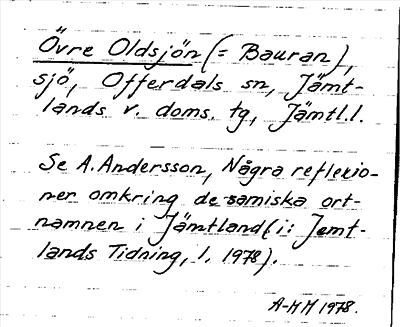 Övre Oldsjön (= Bauran),
sjö, Offerdals sn, Jämt-
lands v. doms. tg, Jämtl.l.
Se A. Andersson, Några reflexio-
ner omkring de samiska ort-
namnen i Jämtland (i: Jemt-
lands Tidning, 1. 1978).
A-HM 1978.